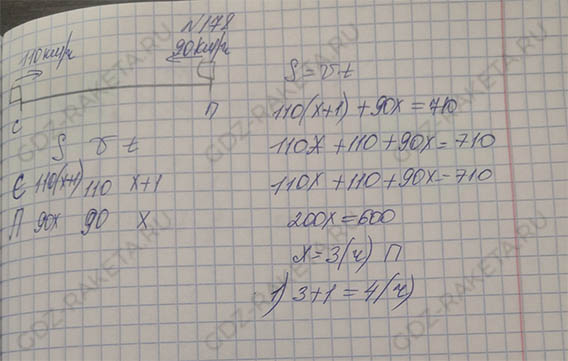 N178
110км/ч
90км/ч
С
П
S v t
С 110(x+1) 110 x+1
П 90x 90 x
S = vt
110(x+1) + 90x = 710
110x + 110 + 90x = 710
110x + 110 + 90x = 710
200x = 600
x = 3(ч) П
1) 3+1 = 4(ч)
GDZ-RAKETA.RU